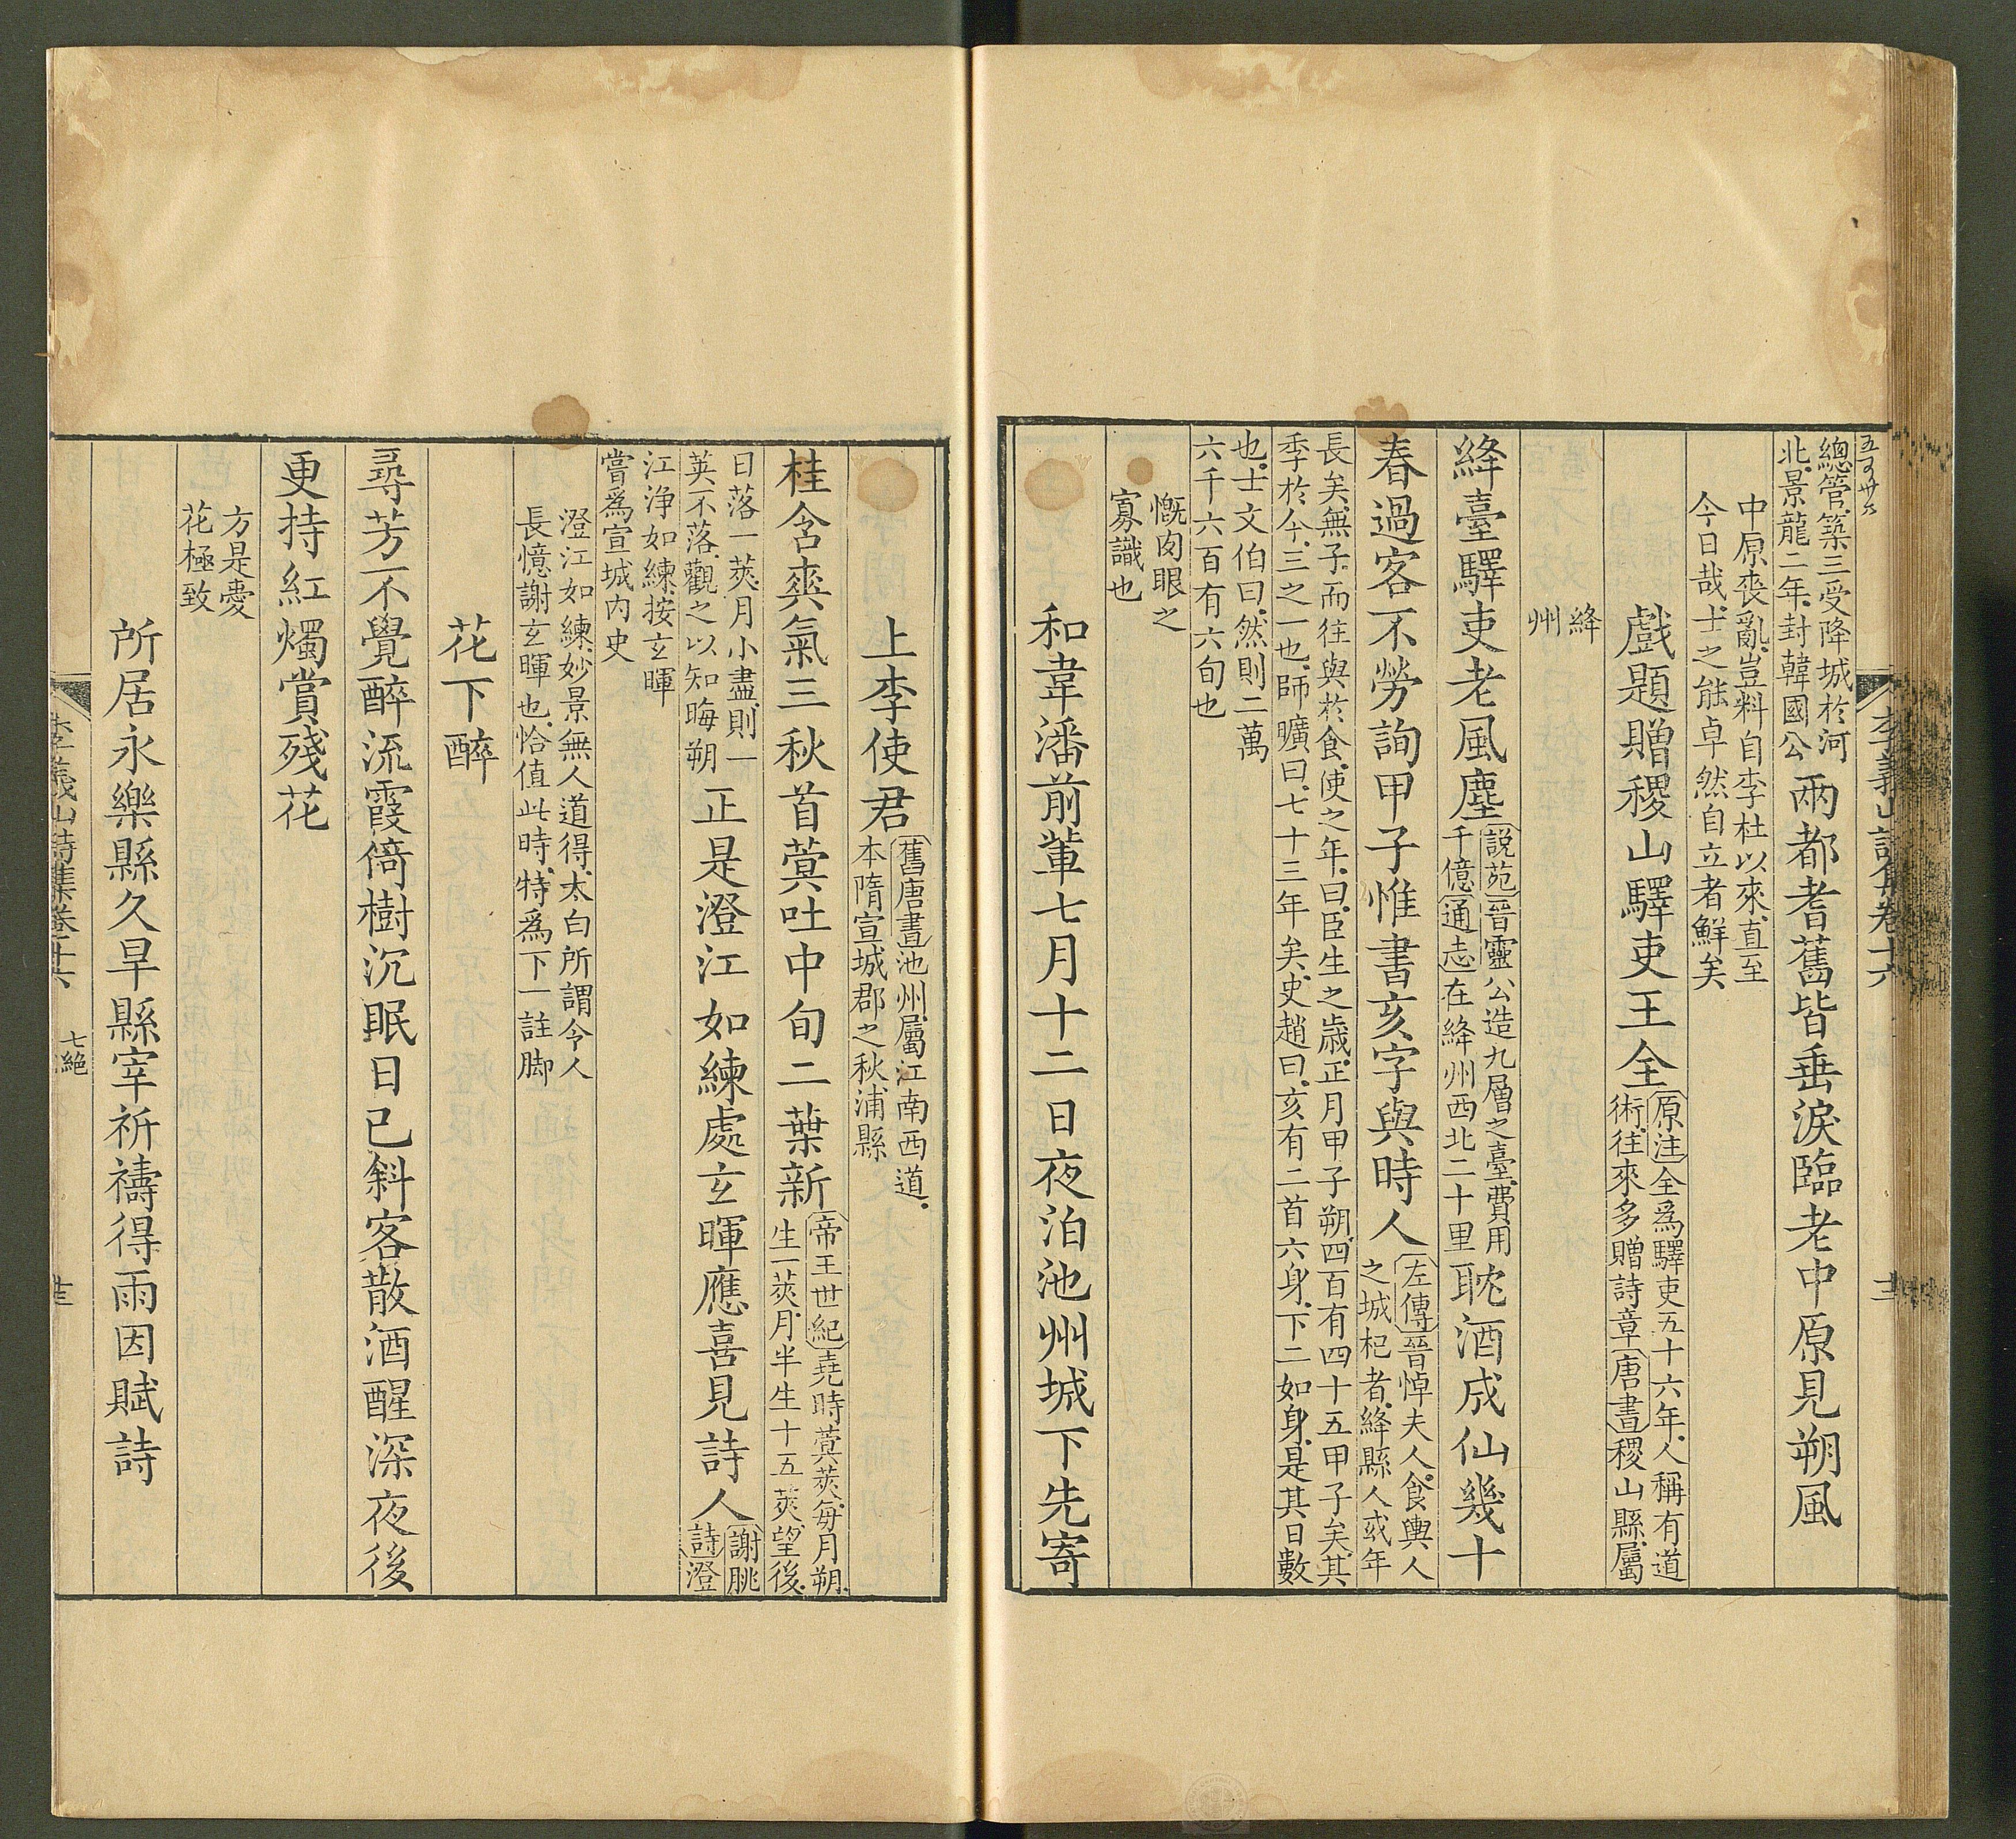 李義山詩集卷十六
總管築三受降城於河
北景龍二年封韓國公
兩都耆舊皆垂淚臨老中原見朔風
中原喪亂豈料自李杜以來直至
今日哉士之能卓然自立者鮮矣
戲題贈稷山驛吏王全
原注全爲驛吏五十六年人稱有道
術往來多贈詩章唐書稷山縣屬
絳
州
絳臺驛吏老風塵
說苑晉靈公造九層之臺費用
千億通志在絳州西北二十里
耽酒成仙幾十
春過客不勞詢甲子惟書亥字與時人
左傳晉悼夫人食輿人
之城杞者絳縣人或年
長矣無子而往與於食使之年曰臣生之歲正月甲子朔四百有四十五甲子矣其
季於今三之一也師曠曰七十三年矣史趙曰亥有二首六身下二如身是其日數
也士文伯曰然則二萬
六千六百有六旬也
慨肉眼之
寡識也
和韋潘前輩七月十二日夜泊池州城下先寄
上李使君
舊唐書池州屬江南西道
本隋宣城郡之秋浦縣
桂含爽氣三秋首蓂吐中旬二葉新
帝王世紀堯時蓂莢每月朔
生一莢月半生十五莢望後
日落一莢月小盡則一
莢不落觀之以知晦朔
正是澄江如練處玄暉應喜見詩人
謝脁
詩澄
江淨如練按玄暉
嘗爲宣城內史
澄江如練妙景無人道得太白所謂令人
長憶謝玄暉也恰值此時特爲下一註脚
花下醉
尋芳不覺醉流霞倚樹沉眠日已斜客散酒醒深夜後
更持紅燭賞殘花
方是愛
花極致
所居永樂縣久旱縣宰祈禱得雨因賦詩
李義山詩集卷十六
七絕